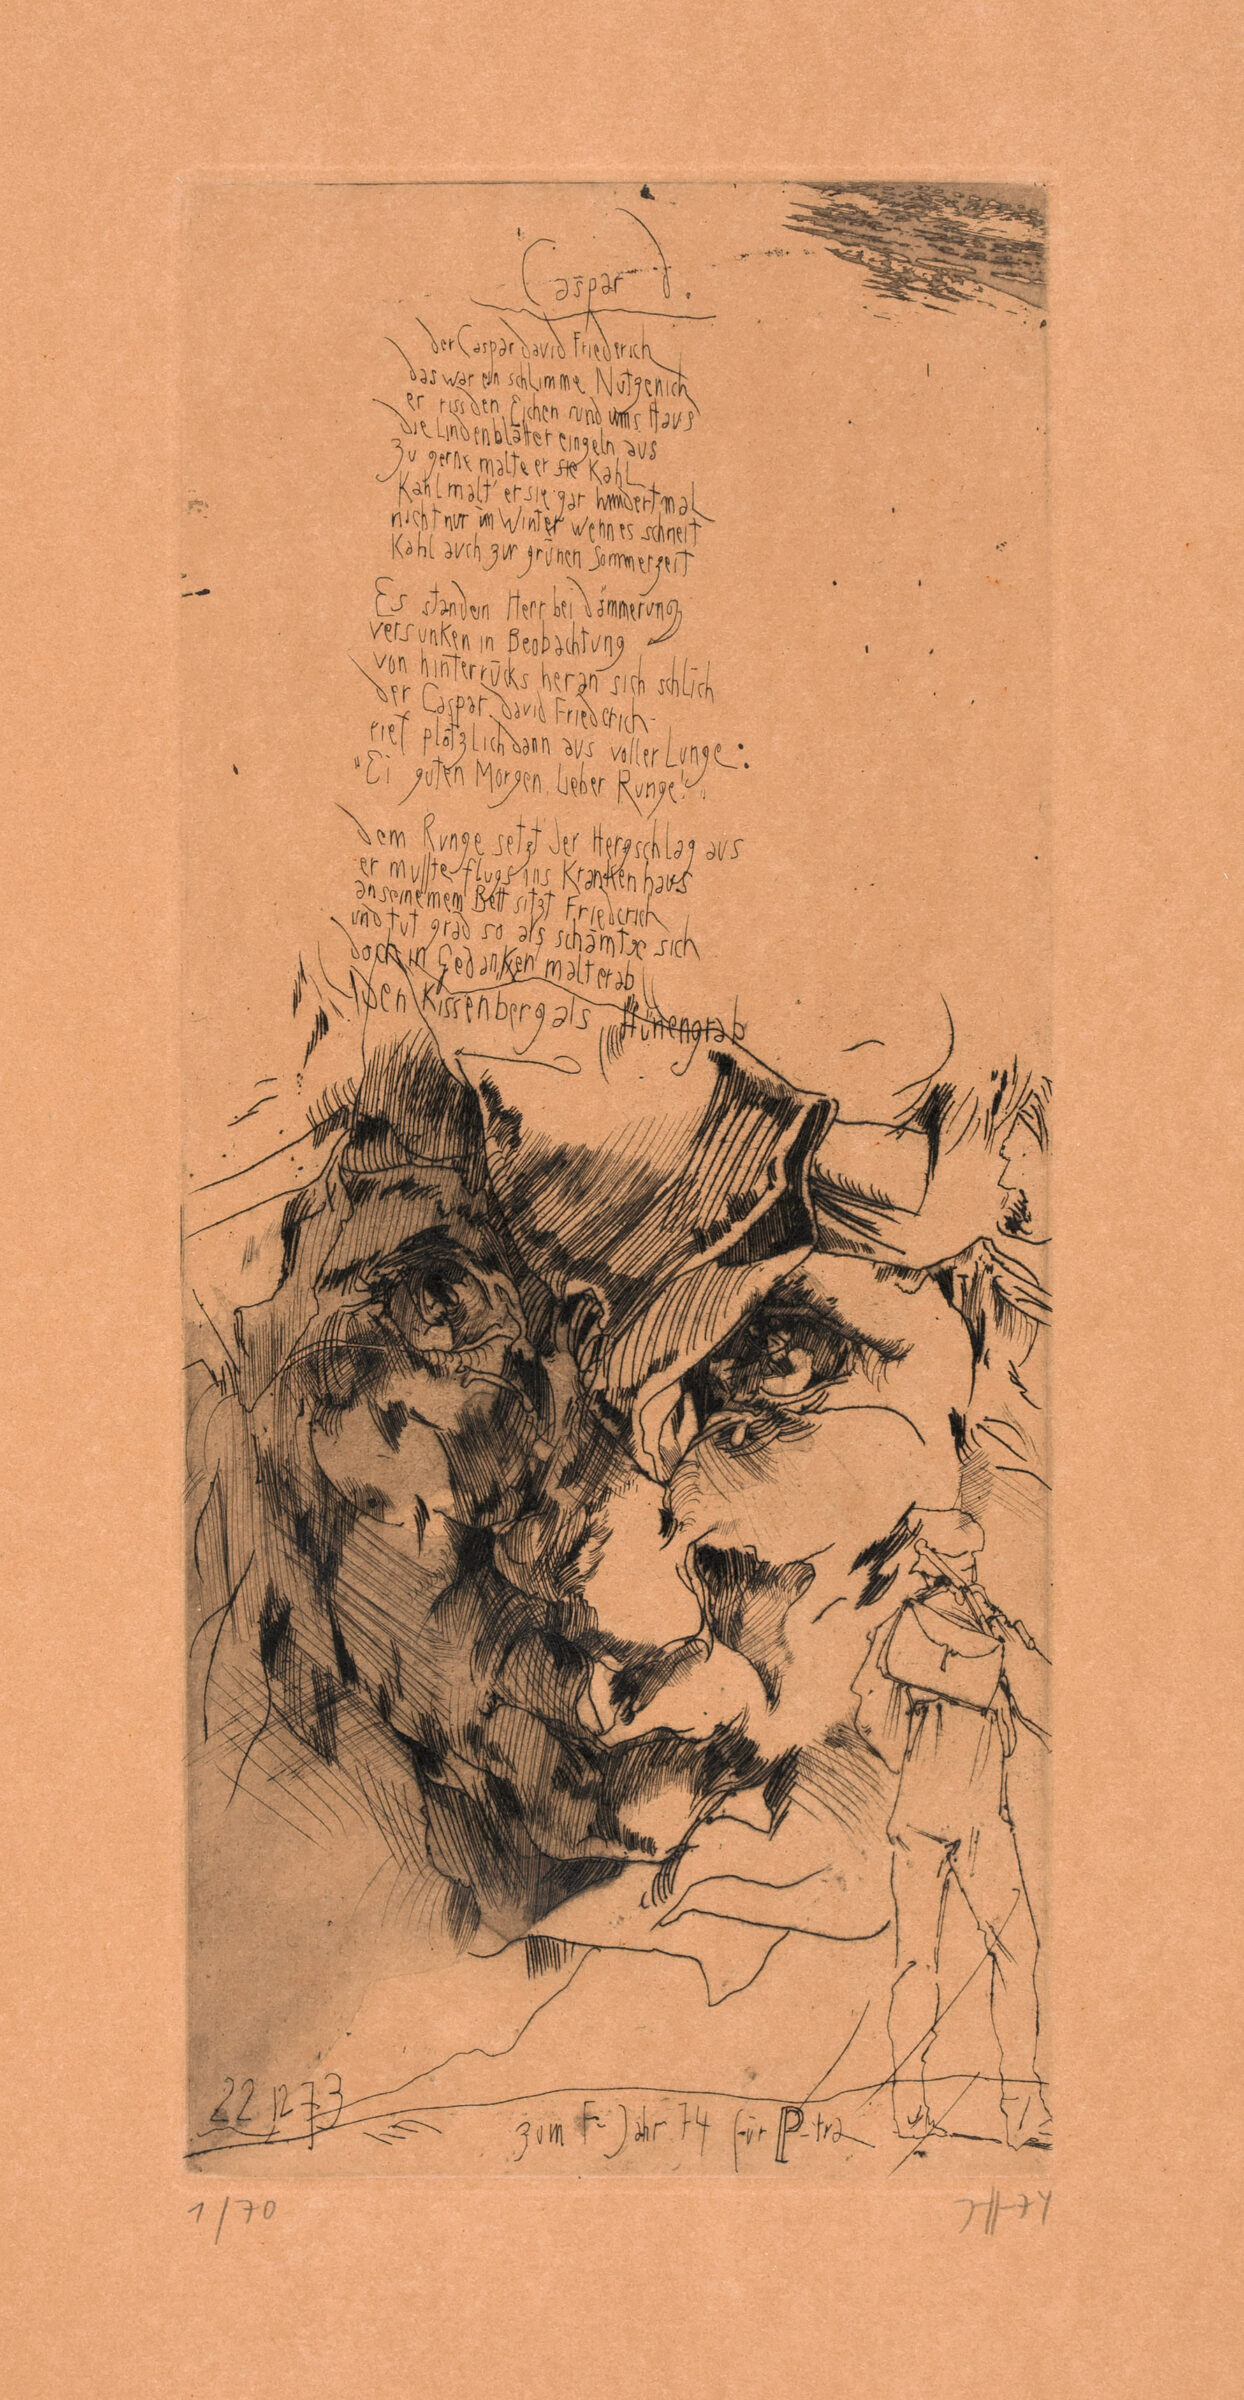 Caspar f.
der Caspar david Friederich
das war ein schlimme Nutzenich
er riss den Eichen rund ums Haus
die Lindenbläter einzeln aus
zu gerne malte er sie Kahl
Kahl malt' er sie gar hundertmal
nicht nur im Winter wenn es schneit
Kahl auch zur grünen Sommerzeit
Es stand ein Herr bei dämmerung
versunken in Beobachtung
von hinterrücks heran sich schlich
der Caspar david Friederich
rief plötzlich dann aus voller Lunge:
"Ei guten Morgen, lieber Runge!"
dem Runge setzt der Herzschlag aus
er mußte flugs ins Krankenhaus
an seinem Bett sitzt Friederich
und tut grad so als schämte sich
doch in Gedanken malt er ab
den Kissenberg als Hünengrab
22 12 73
zum F- Jahr 74 für P-tra
1/70